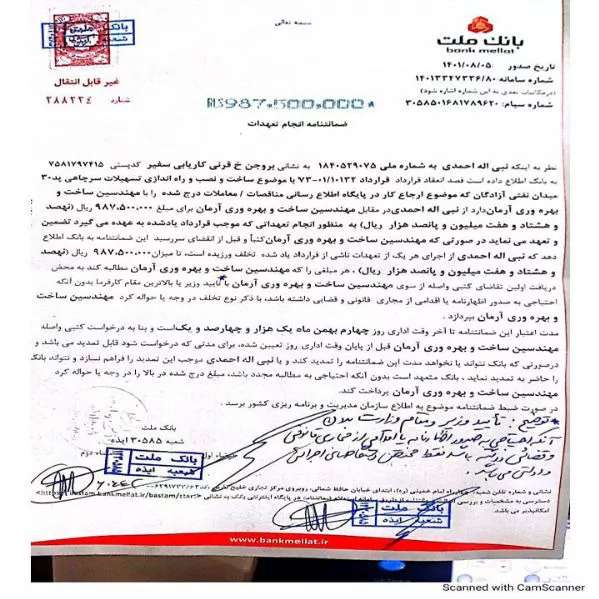 بسمه تعالی
بانک ملت
bank mellat
بانک ملت
شعبه ایذه
تاریخ صدور ۱۴۰۱/۰۸/۰۵
شماره سامانه ۱۴۰۱۳۳۴۷۳۳۶/۸۰
(در مکاتبات بعدی به این شماره اشاره شود)
شماره سپام: ۳۰۵۸۵۰۱۶۸۱۷۸۹۶۲۰
غیر قابل انتقال
شماره ۲۸۸۲۲۴
RLS987,500,000*
ضمانتنامه انجام تعهدات
نظر به اینکه نبی اله احمدی به شماره ملی ۱۸۴۰۵۲۹۰۷۵ به نشانی بروجن خ قرنی کاریابی سفیر کدپستی ۷۵۸۱۷۹۷۴۱۵
به بانک اطلاع داده است قصد انعقاد قرارداد قرارداد ۰۱/۱۰۱۳۲-۷۳ با موضوع ساخت و نصب و راه اندازی تسهیلات سرچاهی پد۳۰
میدان نفتی آزادگان که موضوع ارجاع کار در پایگاه اطلاع رسانی مناقصات / معاملات درج شده را با مهندسین ساخت و
بهره وری آرمان دارد از نبی اله احمدی در مقابل مهندسین ساخت و بهره وری آرمان برای مبلغ ۹۸۷,۵۰۰,۰۰۰ ریال (نهصد
و هشتاد و هفت میلیون و پانصد هزار ریال) به منظور انجام تعهداتی که موجب قرارداد یادشده به عهده می گیرد تضمین
و تعهد می نماید در صورتی که مهندسین ساخت و بهره وری آرمان کتباً و قبل از انقضای سررسید این ضمانتنامه به بانک اطلاع
دهد که نبی اله احمدی از اجرای هر یک از تعهدات ناشی از قرارداد یاد شده تخلف ورزیده است، تا میزان ۹۸۷,۵۰۰,۰۰۰ ریال (نهصد
و هشتاد و هفت میلیون و پانصد هزار ریال) ، هر مبلغی را که مهندسین ساخت و بهره وری آرمان مطالبه کند به محض
دریافت اولین تقاضای کتبی واصله از سوی مهندسین ساخت و بهره وری آرمان با تایید وزیر یا بالاترین مقام کارفرما بدون آنکه
احتیاجی به صدور اظهارنامه یا اقدامی از مجاری قانونی و قضایی داشته باشد، با ذکر نوع تخلف در وجه یا حواله کرد مهندسین ساخت
و بهره وری آرمان بپردازد .
مدت اعتبار این ضمانتنامه تا آخر وقت اداری روز چهارم بهمن ماه یک هزار و چهارصد و یک است و بنا به درخواست کتبی واصله
مهندسین ساخت و بهره وری آرمان قبل از پایان وقت اداری روز تعیین شده، برای مدتی که درخواست شود قابل تمدید می باشد و
درصورتی که بانک نتواند یا نخواهد مدت این ضمانتنامه را تمدید کند و یا نبی اله احمدی موجب این تمدید را فراهم نسازد و نتواند بانک
را حاضر به تمدید نماید ، بانک متعهد است بدون آنکه احتیاجی به مطالبه مجدد باشد، مبلغ درج شده در بالا را در وجه یا حواله کرد
مهندسین ساخت و بهره وری آرمان پرداخت کند.
در صورت ضبط ضمانتنامه موضوع به اطلاع سازمان مدیریت و برنامه ریزی کشور برسد .
بانک ملت
شعبه ۳۰۵۸۵ ایذه
بانک ملت
شعبه ایذه
بانک ملت
شعبه ایذه
www.bankmellat.ir
Scanned with CamScanner